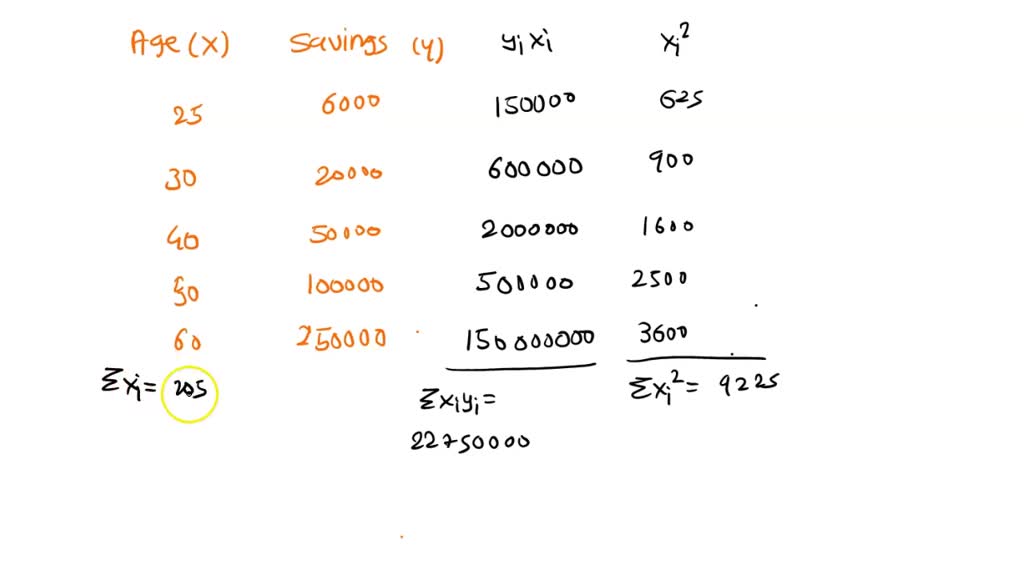 Age (x) Savings (y) yi xi xi²
25 6000 150000 625
30 20000 600000 900
40 50000 2000000 1600
50 100000 500000 2500
60 250000 150000000 3600
Σxi = 205 Σxiyi = Σxi² = 9225
22750000